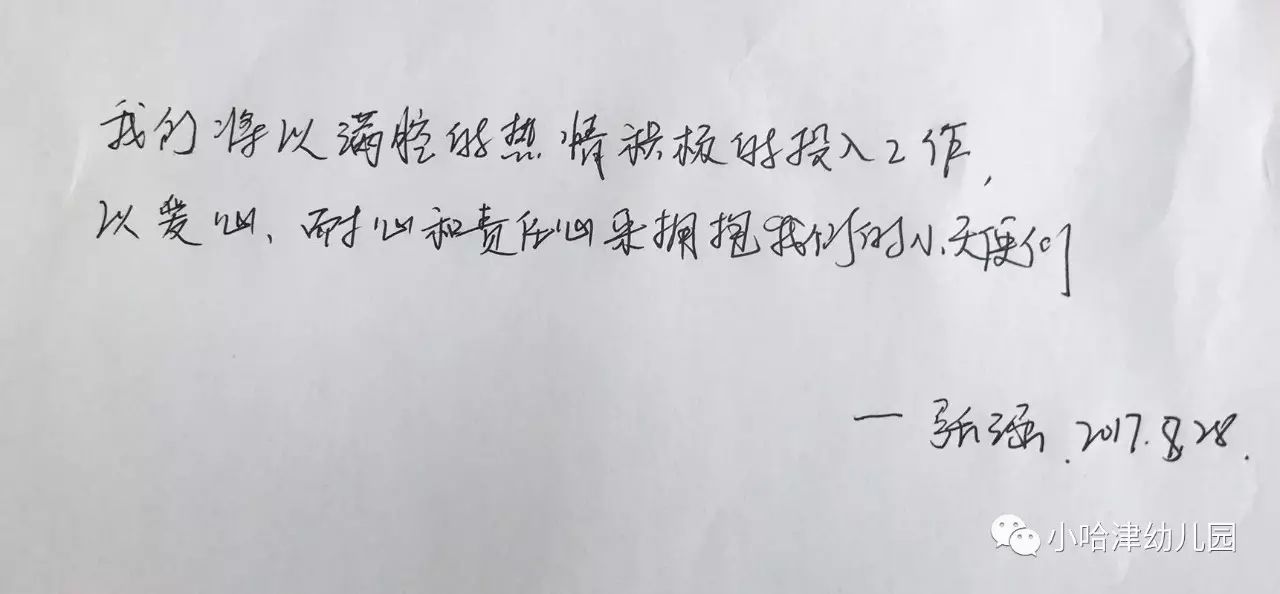 我们将以满腔的热情积极的投入工作,
以爱心、耐心和责任心来拥抱我们的小天使们
— 张强. 2017.8.28.
小哈津幼儿园